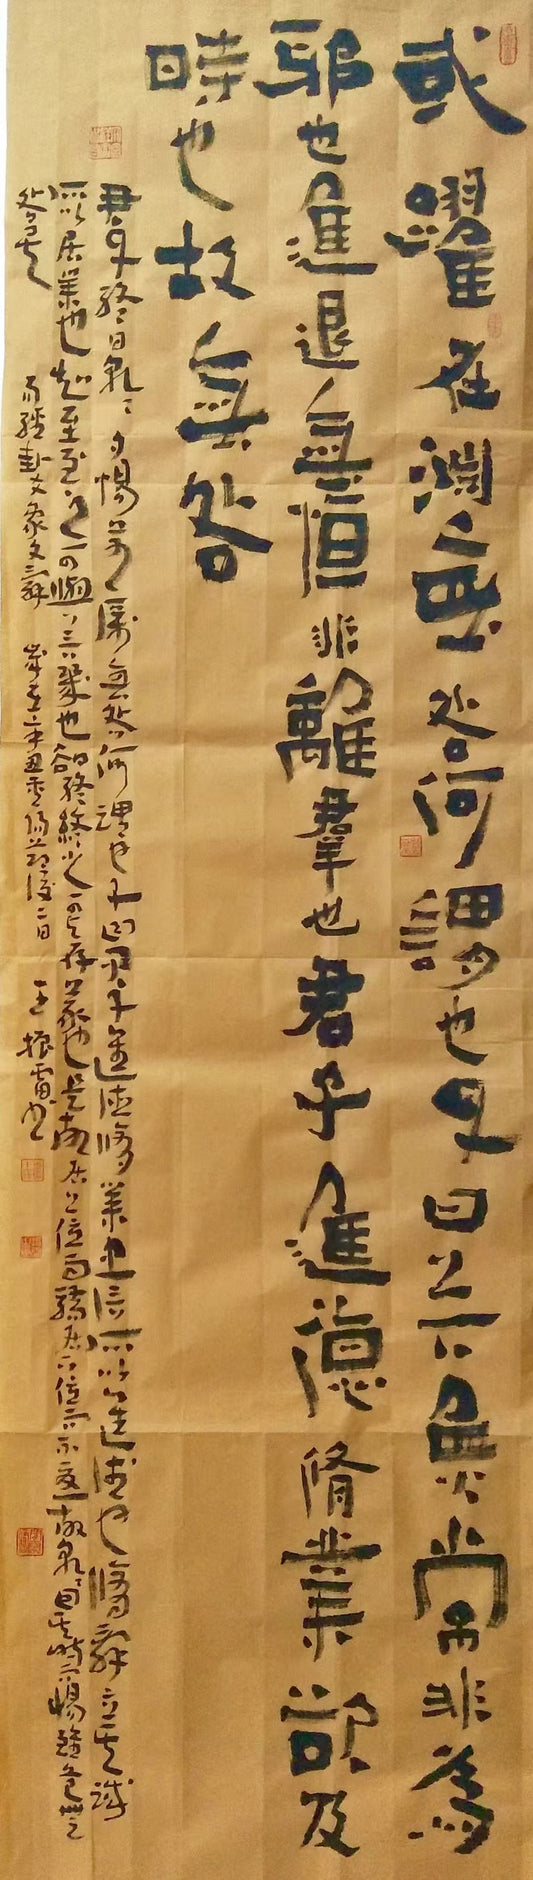 或躍在淵無咎何謂也子曰上下無常非為
邪也進退無恒非離羣也君子進德脩業欲及
時也故無咎
君子終日乾乾夕惕若厲無咎何謂也子曰君子進德脩業忠信所以進德也脩辭立其誠
所以居業也知至至之可與言幾也知終終之可與存義也是故居上位而驕居下位而不憂故乾乾因其時而惕雖危無
咎矣
易經卦文象文言辭 歲在辛丑重陽節後二日 王振雷書